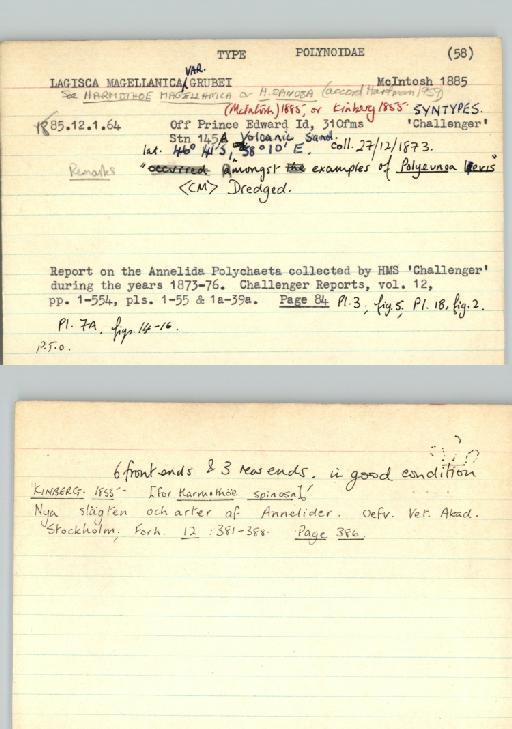 TYPE POLYNOIDAE (58)
VAR.
LAGISCA MAGELLANICA GRUBEI McIntosh 1885
See HARMOTHOE MAGELLANICA or H. SPINOSA (accord Hartman 1959)
(McIntosh) 1885, or Kinberg 1855 SYNTYPES.
1885.12.1.64 Off Prince Edward Id, 310fms 'Challenger'
Stn 145A Volcanic Sand.
Lat. 46° 41'S, 38° 10' E. Coll. 27/12/1873.
Remarks "occurred amongst the examples of Polyeunoa laevis"
<CM> Dredged.
Report on the Annelida Polychaeta collected by HMS 'Challenger'
during the years 1873-76. Challenger Reports, vol. 12,
pp. 1-554, pls. 1-55 & 1a-39a. Page 84 Pl.3, fig.5, Pl. 18, fig. 2.
Pl. 7A, figs. 14-16.
P.T.O.
6 front ends & 3 rear ends. in good condition
KINBERG. 1855 [for Harmothöe spinosa]
Nya slägten och arter af Annelider. Oefv. Vet. Akad.
Stockholm, Forh. 12 : 381-388. Page 386.